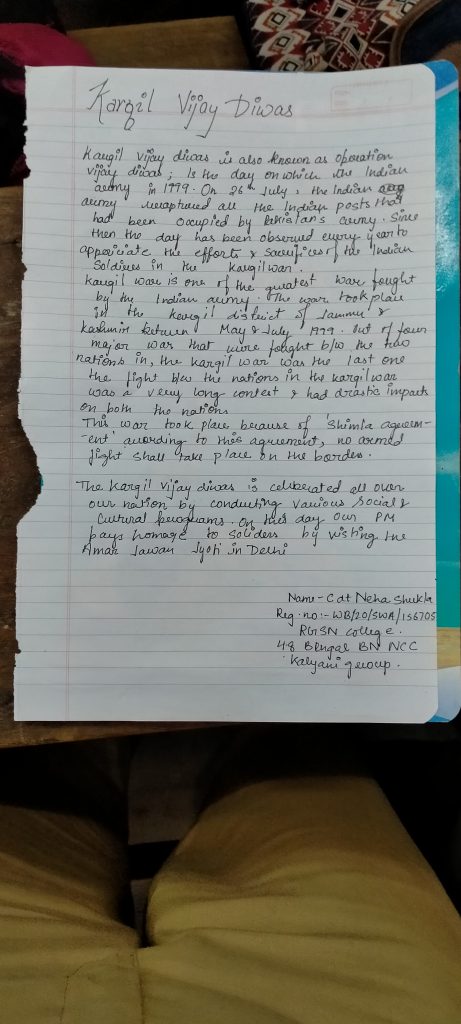 Kargil Vijay Diwas
Kargil vijay diwas is also known as operation
vijay diwas; Is the day on which the Indian
army in 1999. On 26th July, the Indian
army recaptured all the Indian posts that
had been occupied by Pakistan's army. Since
then the day has been observed every year to
appriciate the efforts & sacrifices of the Indian
Soldiers in the kargil war.
Kargil war is one of the greatest war fought
by the Indian army. The war took place
in the kargil district of Jammu &
Kashmir between May & July 1999. Out of four
major war that were fought b/w the two
nations in, the kargil war was the last one
the fight b/w the nations in the kargil war
was a very long contest & had drastic impacts
on both the nations
This war took place because of 'Shimla agreem-
-ent' according to this agreement, no armed
fight shall take place on the border.
The Kargil vijay diwas is celiberated all over
our nation by conducting various social &
Cultural programs. On this day our PM
pays homage to soliders by visting the
Amar Jawan Jyoti in Delhi
Name - Cdt Neha Shukla
Reg. no:- WB/20/SWA/156705
RGSN college.
48 Bengal BN NCC
Kalyani group.